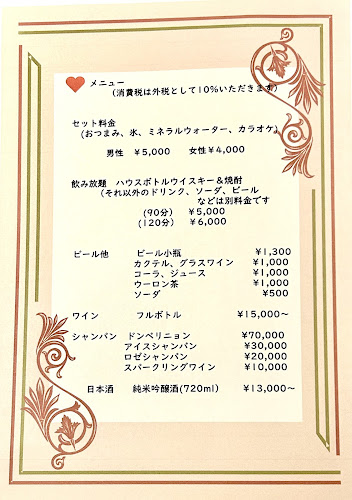 メニュー
(消費税は外税として10%いただきます)
セット料金
(おつまみ、氷、ミネラルウォーター、カラオケ)
男性 ¥5,000 女性¥4,000
飲み放題 ハウスボトルウイスキー&焼酎
(それ以外のドリンク、ソーダ、ビール
などは別料金です
(90分) ¥5,000
(120分) ¥6,000
ビール他 ビール小瓶 ¥1,300
カクテル、グラスワイン ¥1,000
コーラ、ジュース ¥1,000
ウーロン茶 ¥1,000
ソーダ ¥500
ワイン フルボトル ¥15,000~
シャンパン ドンペリニョン ¥70,000
アイスシャンパン ¥30,000
ロゼシャンパン ¥20,000
スパークリングワイン ¥10,000
日本酒 純米吟醸酒(720ml) ¥13,000~